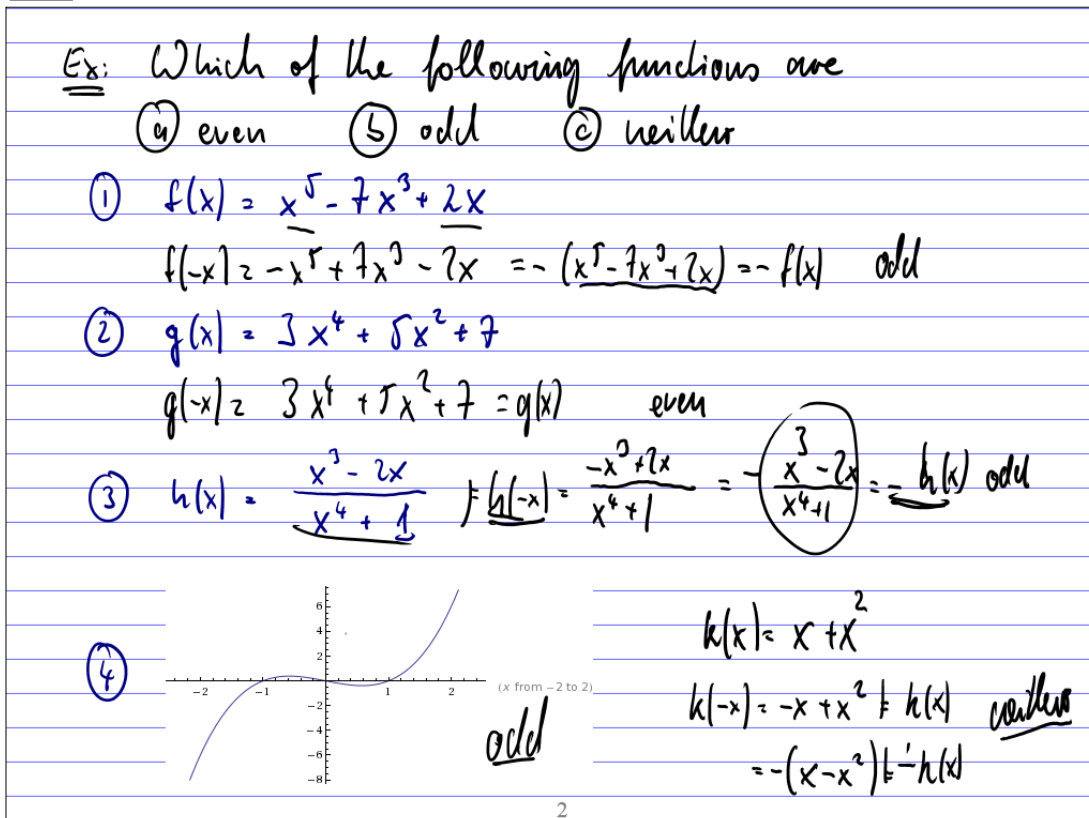 Ex: Which of the following functions are
(a) even (b) odd (c) neither
(1) f(x) = x⁵ - 7x³ + 2x
f(-x) = -x⁵ + 7x³ - 2x = -(x⁵ - 7x³ + 2x) = -f(x) odd
(2) g(x) = 3x⁴ + 5x² + 7
g(-x) = 3x⁴ + 5x² + 7 = g(x) even
(3) h(x) = (x³ - 2x)/(x⁴ + 1) ≠ h(-x) = (-x³ + 2x)/(x⁴ + 1) = -(x³ - 2x)/(x⁴ + 1) = -h(x) odd
(4)
6
4
2
-2 -1 1 2
-2
-4
-6
-8
(x from -2 to 2)
odd
k(x) = x + x²
k(-x) = -x + x² ≠ k(x) neither
= -(x - x²) ≠ -k(x)
2